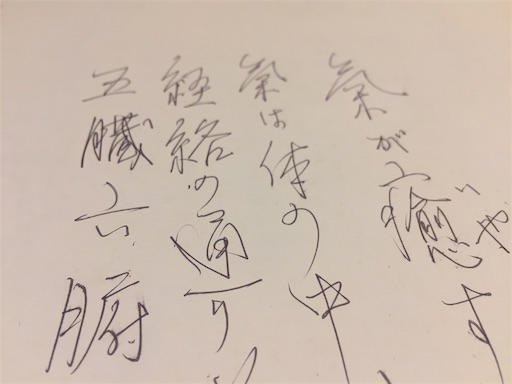 氣が癒す
いや
氣は体の中
経絡の通り
五臓六腑